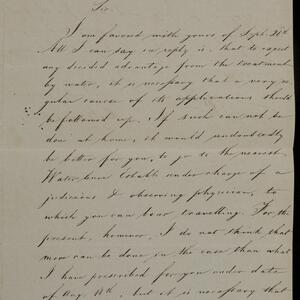 Sir.
I am favored with yours of Sept. 28th
All I can say in reply is, that to expect
any decided advantage from the treatment
by water, it is necessary that a very re-
gular course of its applications should
be followed up. If such can not be
done at home, it would undoubtedly
be better for you, to go to the nearest
Water under charge of a
judicious & observing physician, to
which you can bear travelling. For the
present, however, I do not think that
more can be done in the case than what
I have prescribed for you under date
of Aug. 18th, but it is necessary that